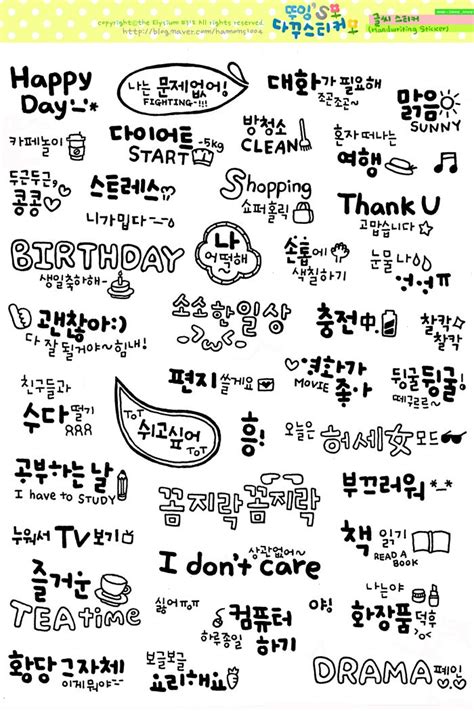 copyright©the Elysium 뚜잉'S All rights reserved.
뚜잉'S 모
다꾸스티커 모
글씨 스티커
(Handwriting Sticker)
Happy
Day
나는 문제없어!
FIGHTING~!!!
대화가 필요해
조곤조곤~
맑음
SUNNY
카페놀이
다이어트 -5kg
START
방청소
CLEAN
혼자 떠나는
여행
두근두근,
콩콩
스트레스
Shopping
쇼퍼홀릭
Thank U
고맙습니다
니가밉다
BIRTHDAY
생일축하해~
나
어떡해
손톱에
색칠하기
눈물 나
엉엉ㅠ
괜찮아:)
다 잘 될거야~힘내!
소소한일상
충전中
찰칵
찰칵
편지 쓸게요
영화가
MOVIE 좋아
뒹굴뒹굴!
떼구르르~
친구들과
수다 떨기
ToT
쉬고싶어
ToT
흥!
오늘은
허세女모드
공부하는 날
I have to STUDY
꼼지락꼼지락
부끄러워*-*
누워서 TV보기
I don't care
상관없어~
책 읽기
READ A
BOOK
즐거운
TEA time
싫어ㅠㅠ
컴퓨터
하루종일 하기
야!
나는야
화장품 덕후
황당 그자체
이게뭐야
보글보글
요리해요
DRAMA 폐인